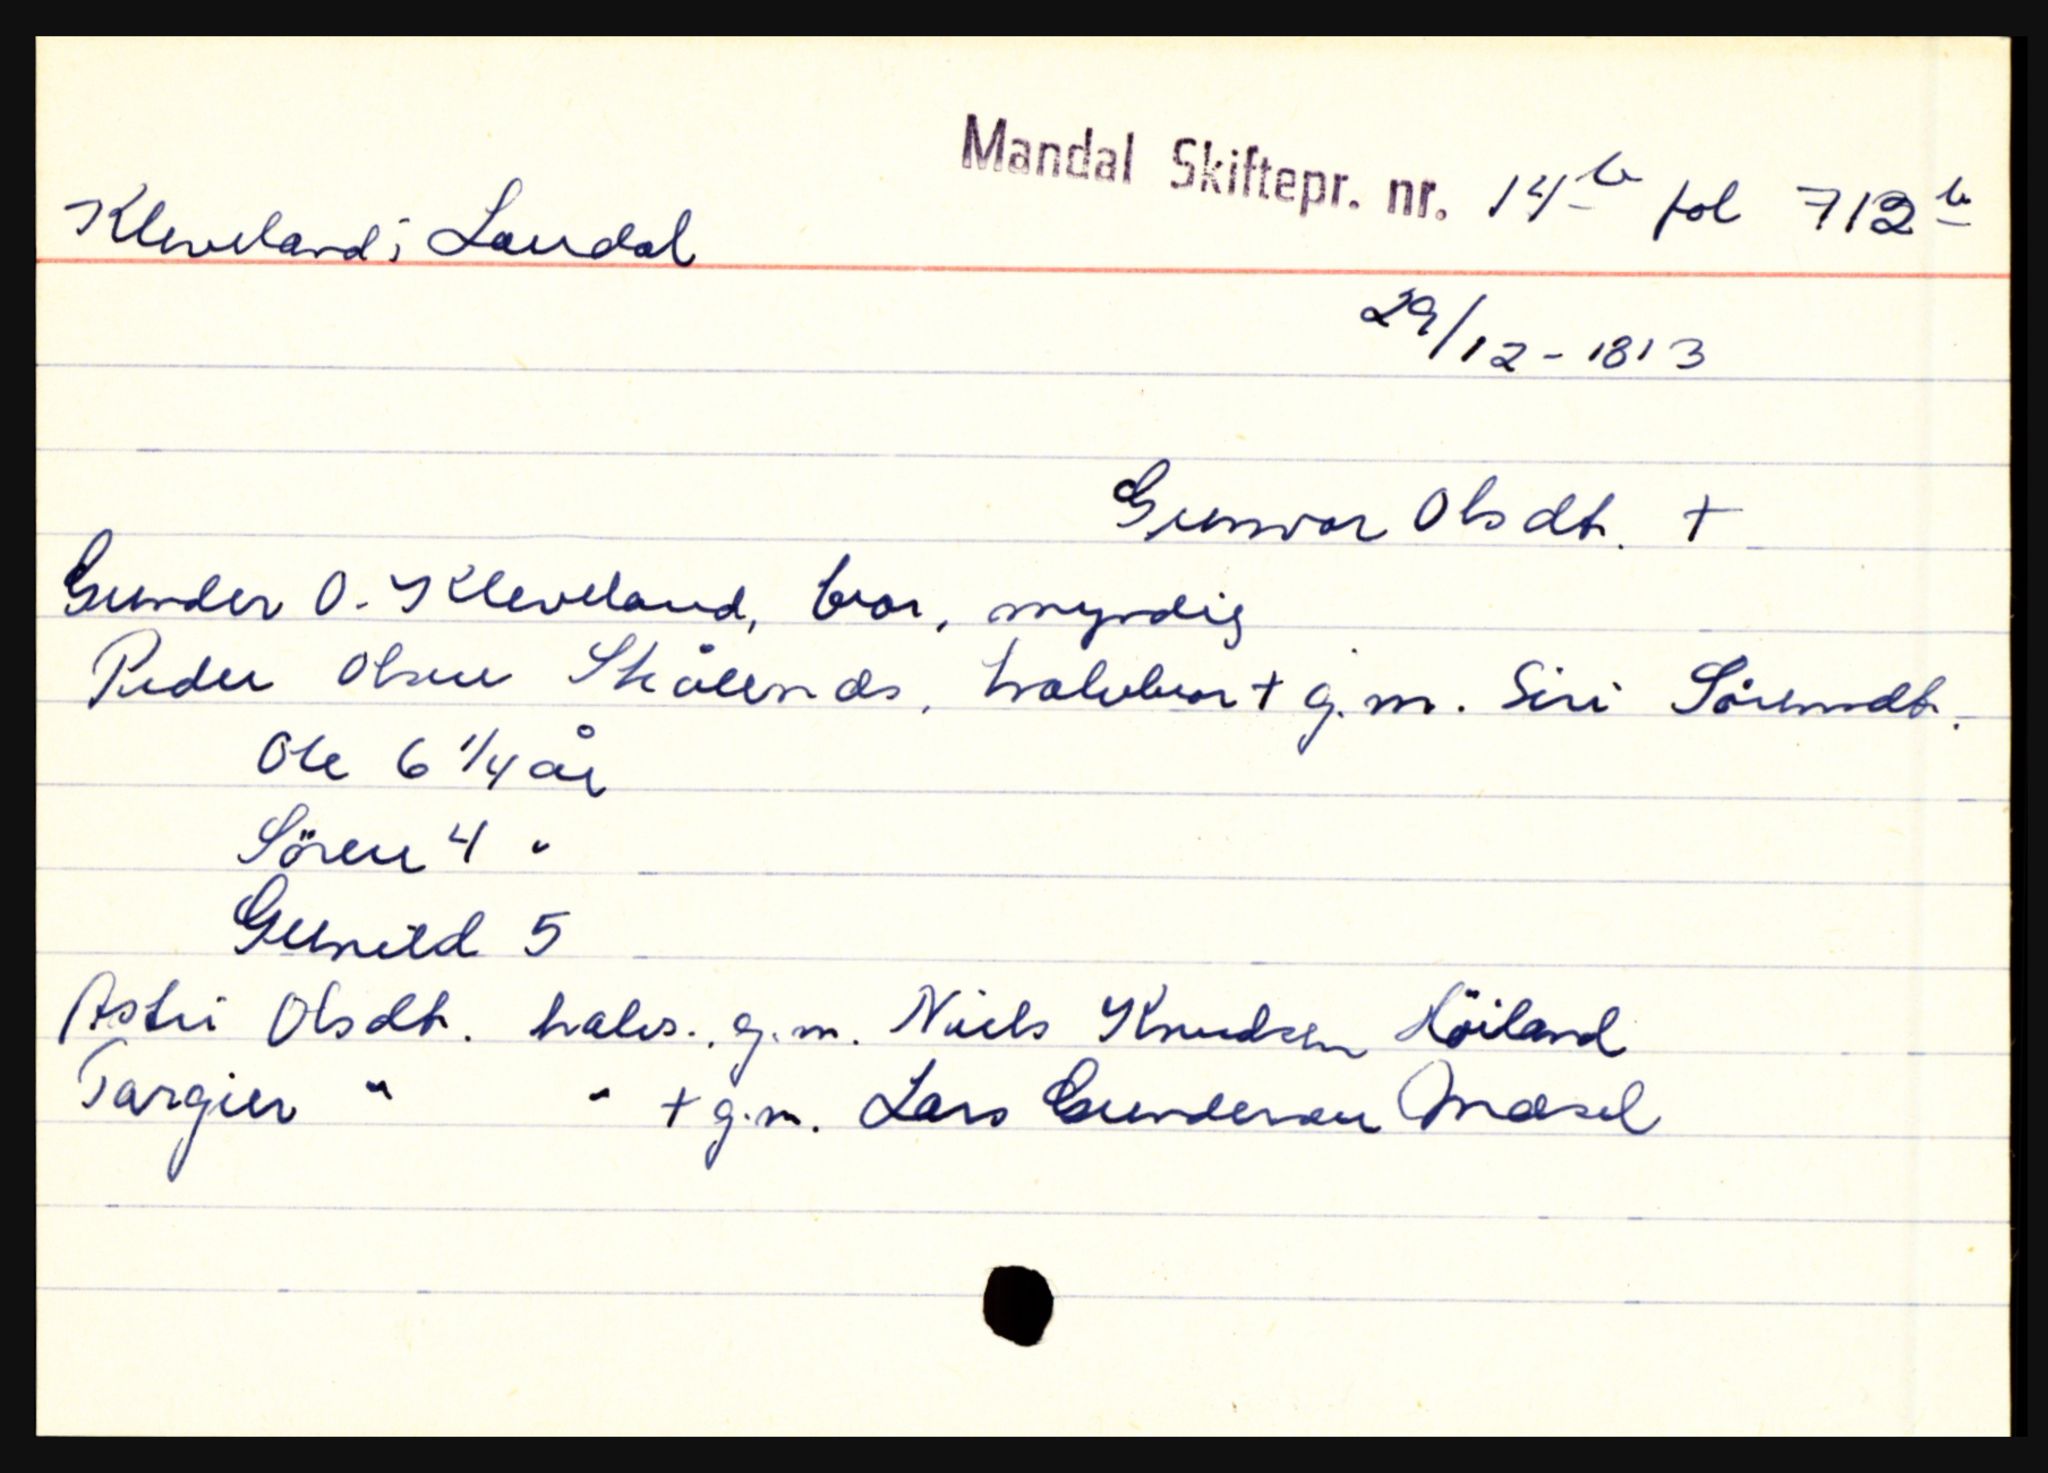 Mandal Skiftepr. nr. 14b fol 712b
Kleveland i Laudal
29/12 - 1813
Gunvor Olsdtr. +
Gunder O. Kleveland, bror, myndig
Peder Olsen Skålenæs, halvbror + g.m. Siri Sörensdtr.
Ole 6 1/4 år
Sören 4 "
Gunild 5
Astri Olsdtr. halvs., g.m. Niels Knudsen Höiland
Targier " " + g.m. Lars Gundersen Mæsel